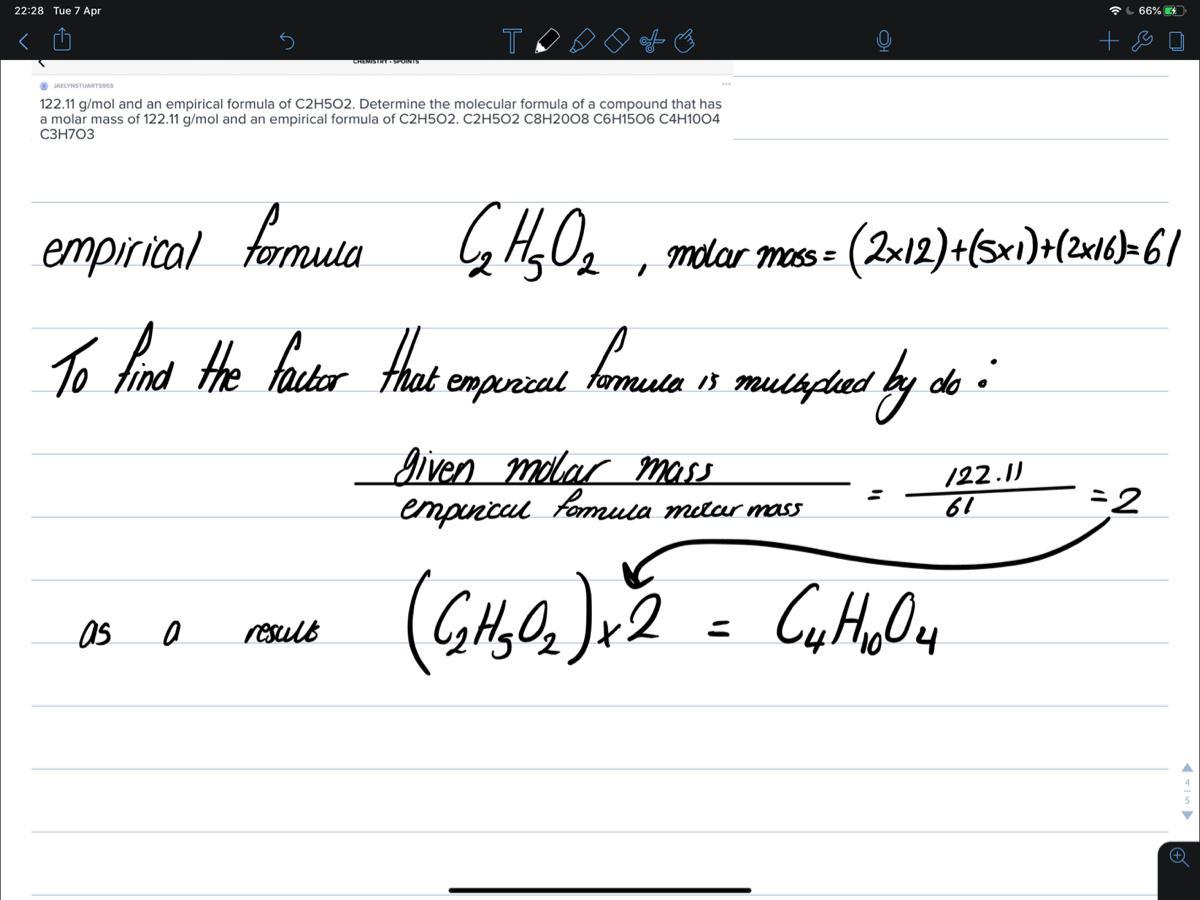 22:28 Tue 7 Apr 66%
T
CHEMISTRY • 5POINTS
JAELYNSTUART5955
122.11 g/mol and an empirical formula of C2H5O2. Determine the molecular formula of a compound that has
a molar mass of 122.11 g/mol and an empirical formula of C2H5O2. C2H5O2 C8H20O8 C6H15O6 C4H10O4
C3H7O3
empirical formula C₂H₅O₂, molar mass = (2x12)+(5x1)+(2x16)=61
To find the factor that empirical formula is multiplied by do :
given molar mass
empirical formula molar mass
= 122.11
61
= 2
as a result (C₂H₅O₂)x2 = C₄H₁₀O₄
4
5